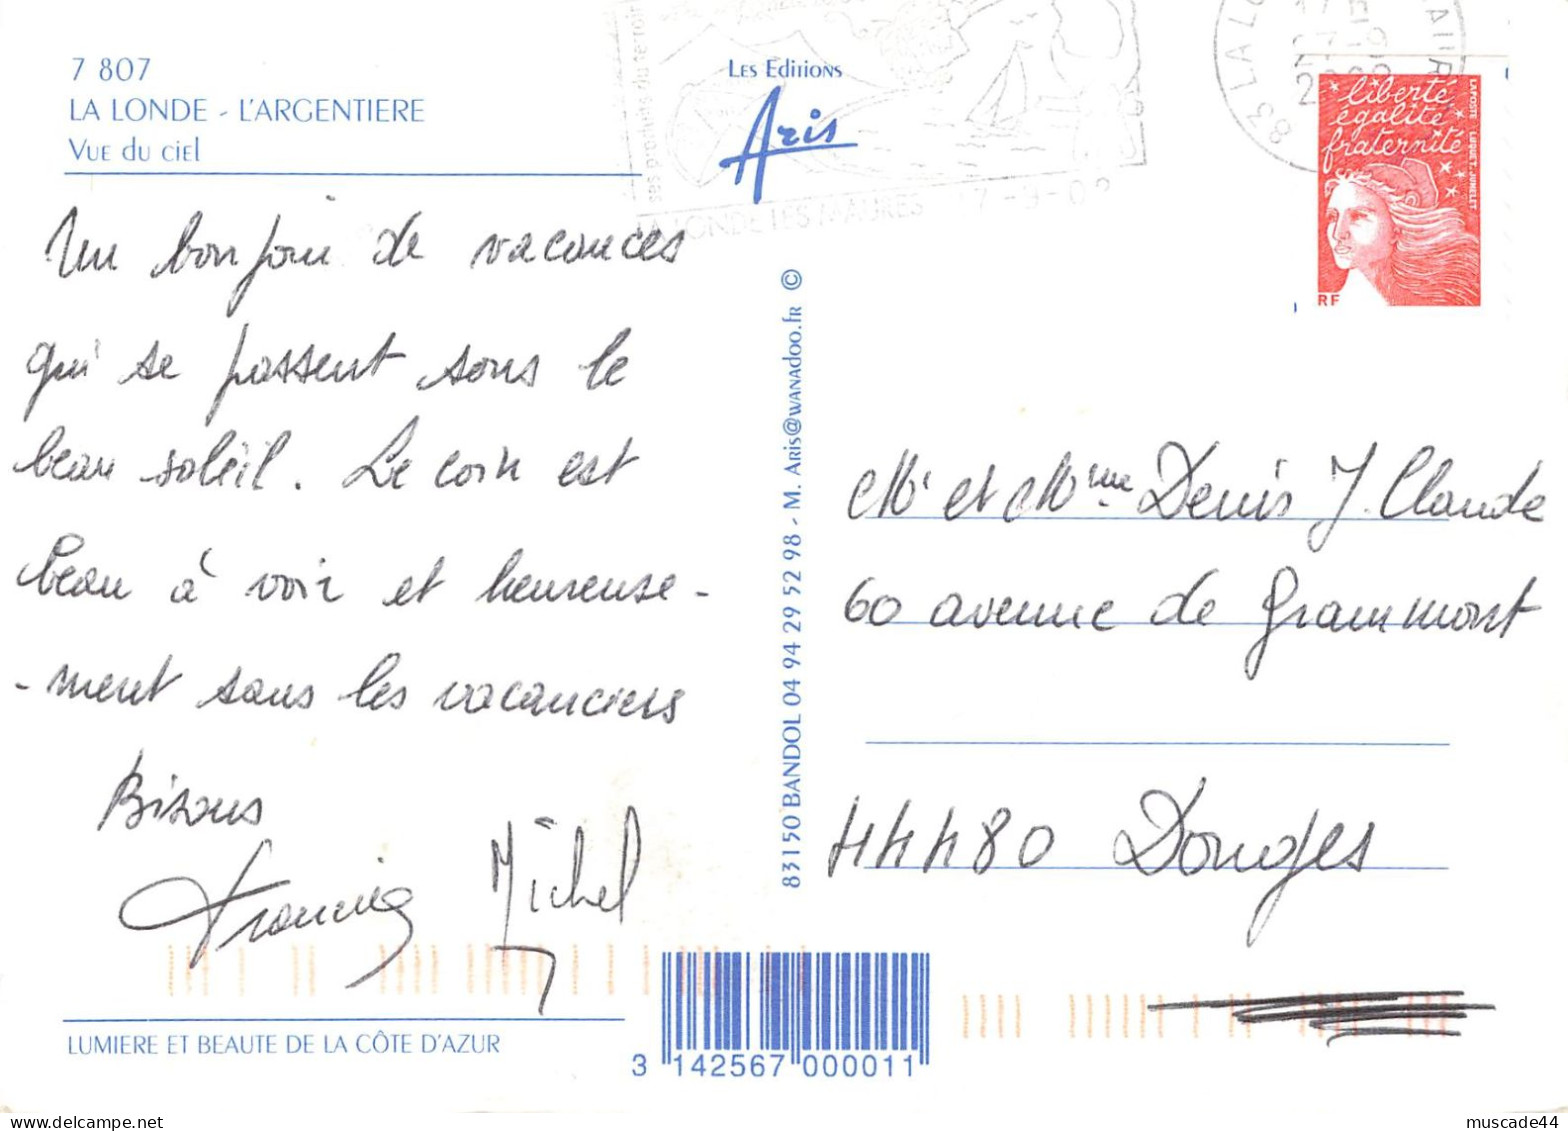 7 807
LA LONDE - L'ARGENTIERE
Vue du ciel
Les Editions
Aris
ses produits du terroir
LA LONDE LES MAURES 17-9-02
83 LA LO
liberté
égalité
fraternité
LA POSTE LUQUET-JUMELET
RF
Un bonjour de vacances
qui se passent sous le
beau soleil. Le coin est
beau à voir et heureuse-
-ment sans les vacanciers
Bisous
Francine Michel
83150 BANDOL 04 94 29 52 98 - M. Aris@wanadoo.fr ©
Mr et Mme Denis J. Claude
60 avenue de Grammont
44480 Donges
LUMIERE ET BEAUTE DE LA CÔTE D'AZUR
3 142567 000011
muscade44